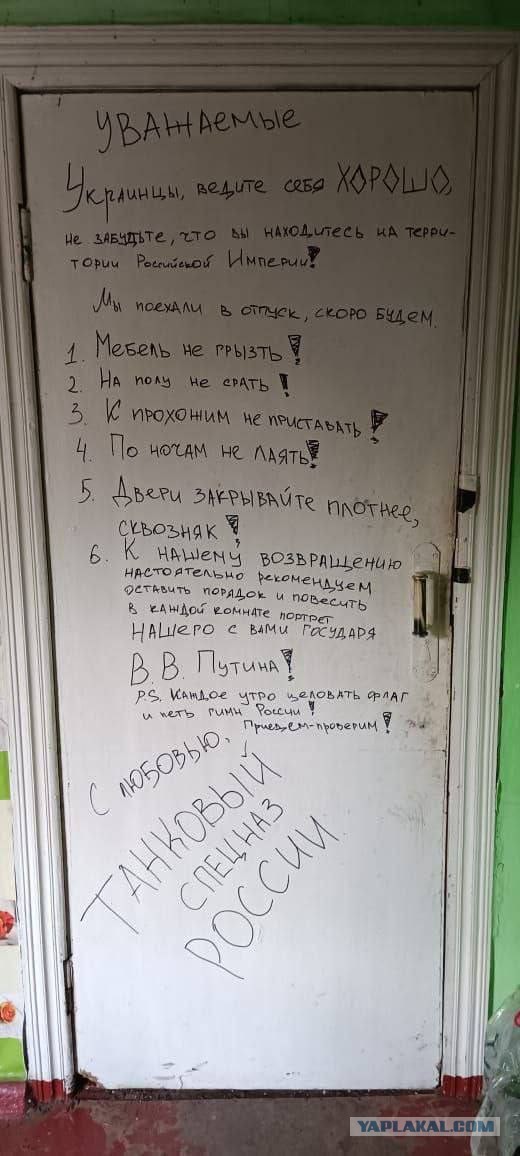 УВАЖАЕМЫЕ
Украинцы, ведите себя ХОРОШО,
не забудьте, что вы находитесь на терри-
тории Российской Империи!
Мы поехали в отпуск, скоро будем.
1. Мебель не грызть!
2. На полу не срать!
3. К прохожим не приставать!
4. По ночам не лаять!
5. Двери закрывайте плотнее,
сквозняк!
6. К нашему возвращению
настоятельно рекомендуем
оставить порядок и повесить
в каждой комнате портрет
нашего с вами государя
В. В. Путина!
P.S. Каждое утро целовать флаг
и петь гимн России!
Приедем-проверим!
С любовью,
ТАНКОВЫЙ
СПЕЦНАЗ
РОССИИ
YAPLAKAL.COM